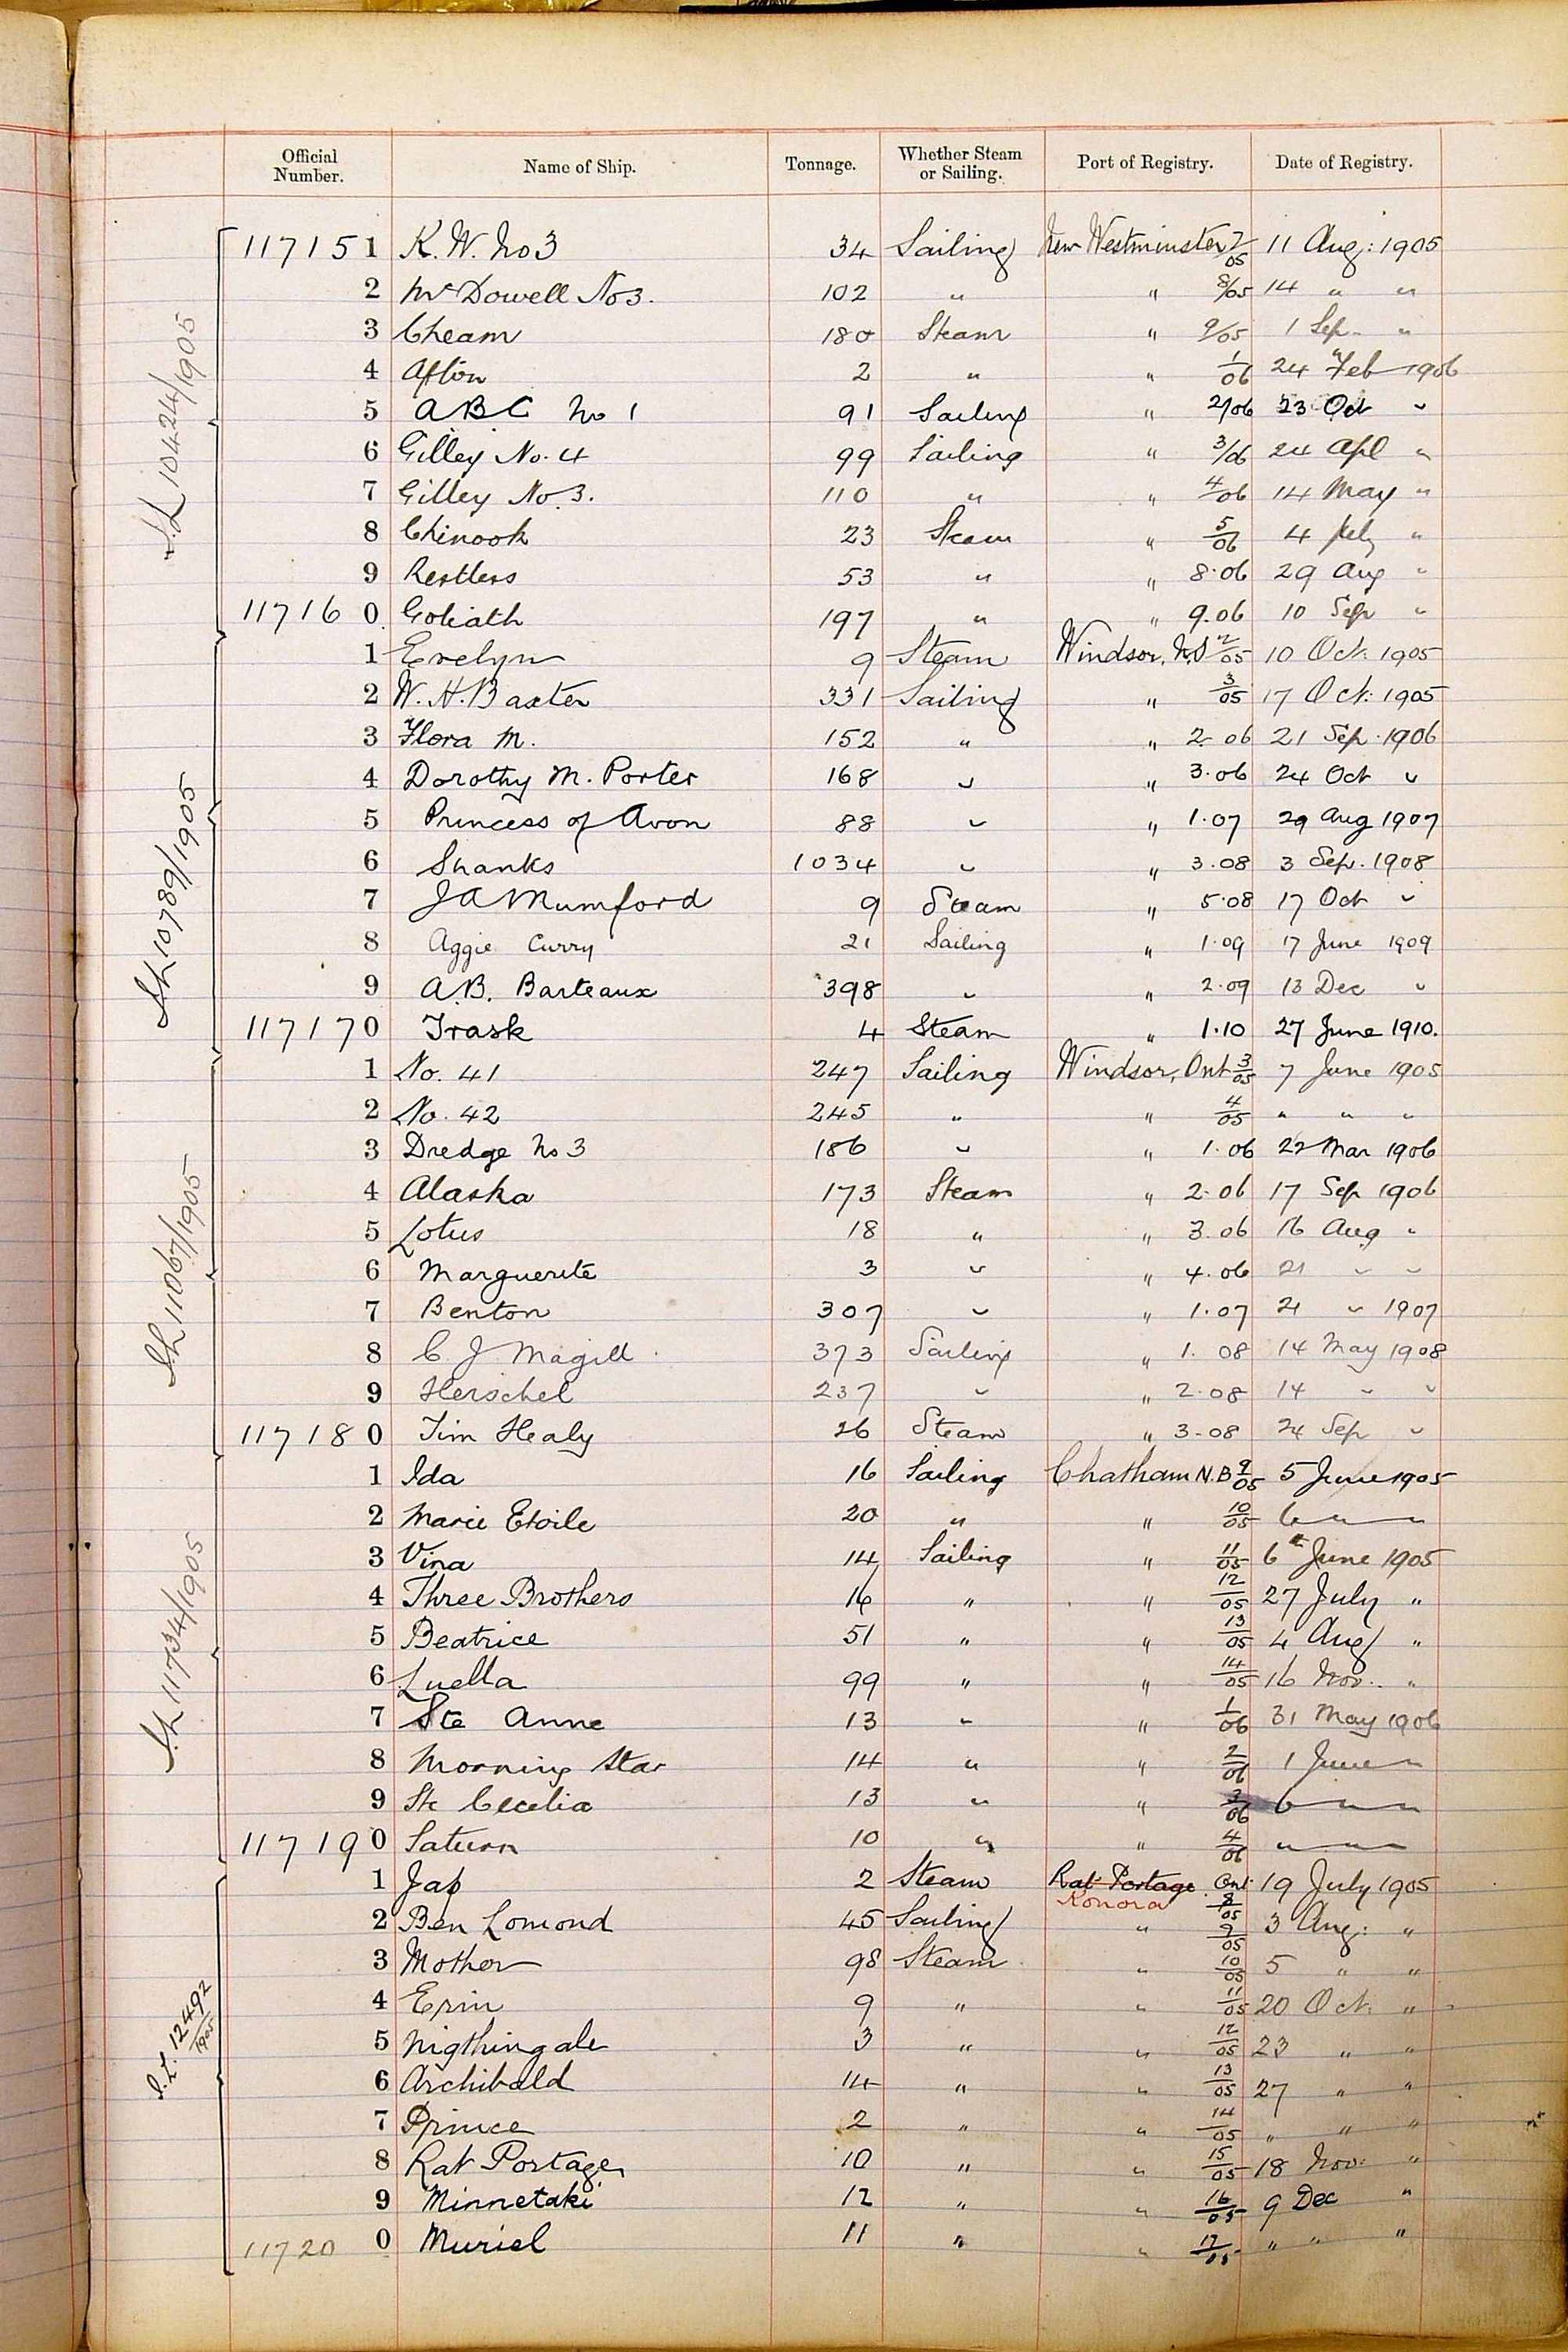 Official Number. Name of Ship. Tonnage. Whether Steam or Sailing. Port of Registry. Date of Registry.
117151 K. W. No 3 34 Sailing New Westminster 7/05 11 Aug: 1905
2 McDowell No 3. 102 " " 8/05 14 " "
3 Cheam 180 Steam " 9/05 1 Sep. "
4 Afton 2 " " 1/06 24 Feb 1906
5 ABC No 1 91 Sailing " 2/06 23 Oct "
6 Gilley No. 4 99 Sailing " 3/06 24 Apl "
7 Gilley No 3. 110 " " 4/06 14 May "
8 Chinook 23 Steam " 5/06 4 July "
9 Restless 53 " " 8.06 29 Aug "
117160 Goliath 197 " " 9.06 10 Sep "
1 Evelyn 9 Steam Windsor, N.S 2/05 10 Oct: 1905
2 W. H. Baxter 331 Sailing " 3/05 17 Oct: 1905
3 Flora M. 152 " " 2 06 21 Sep. 1906
4 Dorothy M. Porter 168 " " 3.06 24 Oct "
5 Princess of Avon 88 " " 1.07 29 Aug 1907
6 Shanks 1034 " " 3.08 3 Sep. 1908
7 J A Mumford 9 Steam " 5.08 17 Oct "
8 Aggie Curry 21 Sailing " 1.09 17 June 1909
9 A.B. Barteaux 398 " " 2.09 13 Dec "
117170 Trask 4 Steam " 1.10 27 June 1910.
1 No. 41 247 Sailing Windsor, Ont 3/05 7 June 1905
2 No. 42 245 " " 4/05 " " "
3 Dredge No 3 186 " " 1.06 22 Mar 1906
4 Alaska 173 Steam " 2.06 17 Sep 1906
5 Lotus 18 " " 3.06 16 Aug "
6 Marguerite 3 " " 4.06 21 " "
7 Benton 307 " " 1.07 21 " 1907
8 C J Magill 373 Sailing " 1. 08 14 May 1908
9 Herschel 237 " " 2.08 14 " "
117180 Tim Healy 26 Steam " 3-08 24 Sep "
1 Ida 16 Sailing Chatham N.B 9/05 5 June 1905
2 Marie Etoile 20 " " 10/05 6 " "
3 Vina 14 Sailing " 11/05 6th June 1905
4 Three Brothers 16 " " 12/05 27 July "
5 Beatrice 51 " " 13/05 4 Aug "
6 Luella 99 " " 14/05 16 Nov. "
7 Ste Anne 13 " " 1/06 31 May 1906
8 Morning Star 14 " " 2/06 1 June "
9 Ste Cecelia 13 " " 3/06 6 " "
117190 Saturn 10 " " 4/06 " " "
1 Jap 2 Steam Rat Portage Ont 8/05 19 July 1905
Kenora
2 Ben Lomond 45 Sailing " 9/05 3 Aug: "
3 Mother 98 Steam " 10/05 5 " "
4 Erin 9 " " 11/05 20 Oct: "
5 Nigthingale 3 " " 12/05 23 " "
6 Archibald 14 " " 13/05 27 " "
7 Prince 2 " " 14/05 " " "
8 Rat Portage 10 " " 15/05 18 Nov: "
9 Minnetaki 12 " " 16/05 9 Dec "
117200 Muriel 11 " " 17/05 " " "
S.L 10424/1905
S.L 10789/1905
S.L 11067/1905
S.L 11734/1905
S.L. 12492/1905